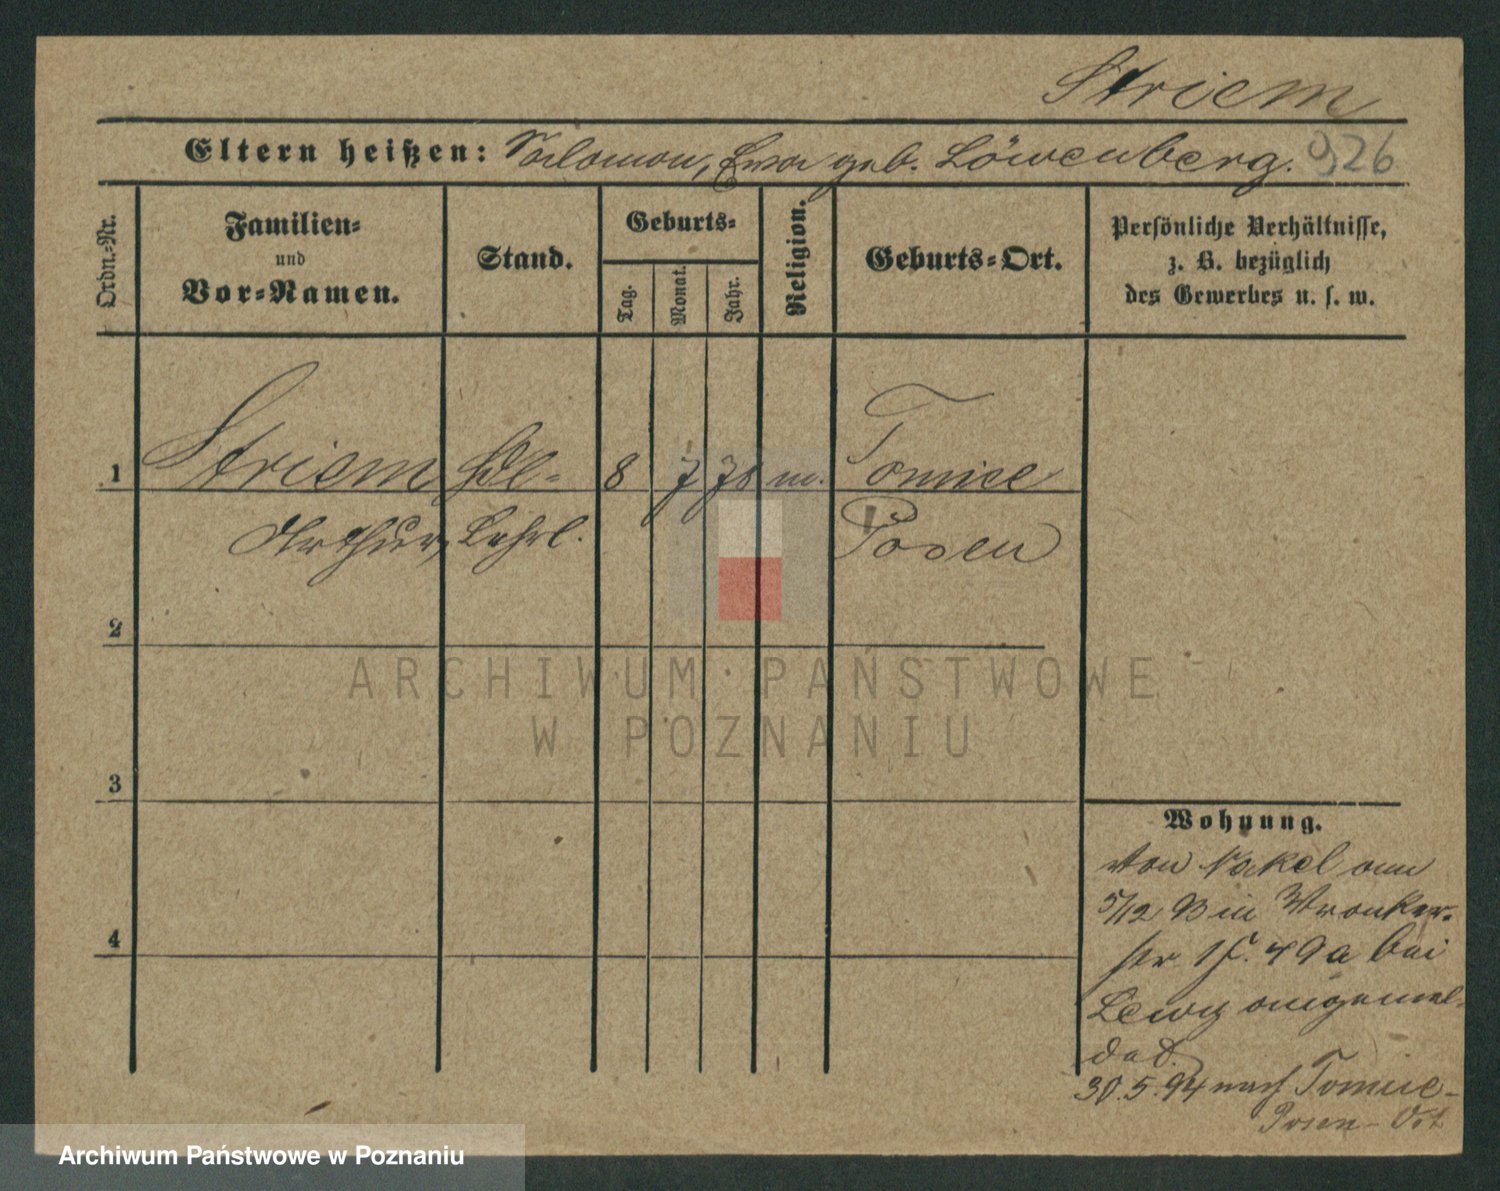 Striem
Eltern heißen: Salomon, Ewa geb. Löwenberg. 926
Ordn.-Nr.
Familien-
und
Vor-Namen.
Stand.
Geburts-
Tag.
Monat.
Jahr.
Religion.
Geburts-Ort.
Persönliche Verhältnisse,
z. B. bezüglich
des Gewerbes u. s. w.
1 Striem Hdl- 8 7 78 m. Tomice
Arthur, Lehrl. Posen
2
ARCHIWUM PAŃSTWOWE
W POZNANIU
3
Wohnung.
Von Nakel am
5/12 93 in Wronker-
str 49a bei
Lewy angemel-
det.
30.5.94 nach Tomice-
Posen-Ost
4
Archiwum Państwowe w Poznaniu